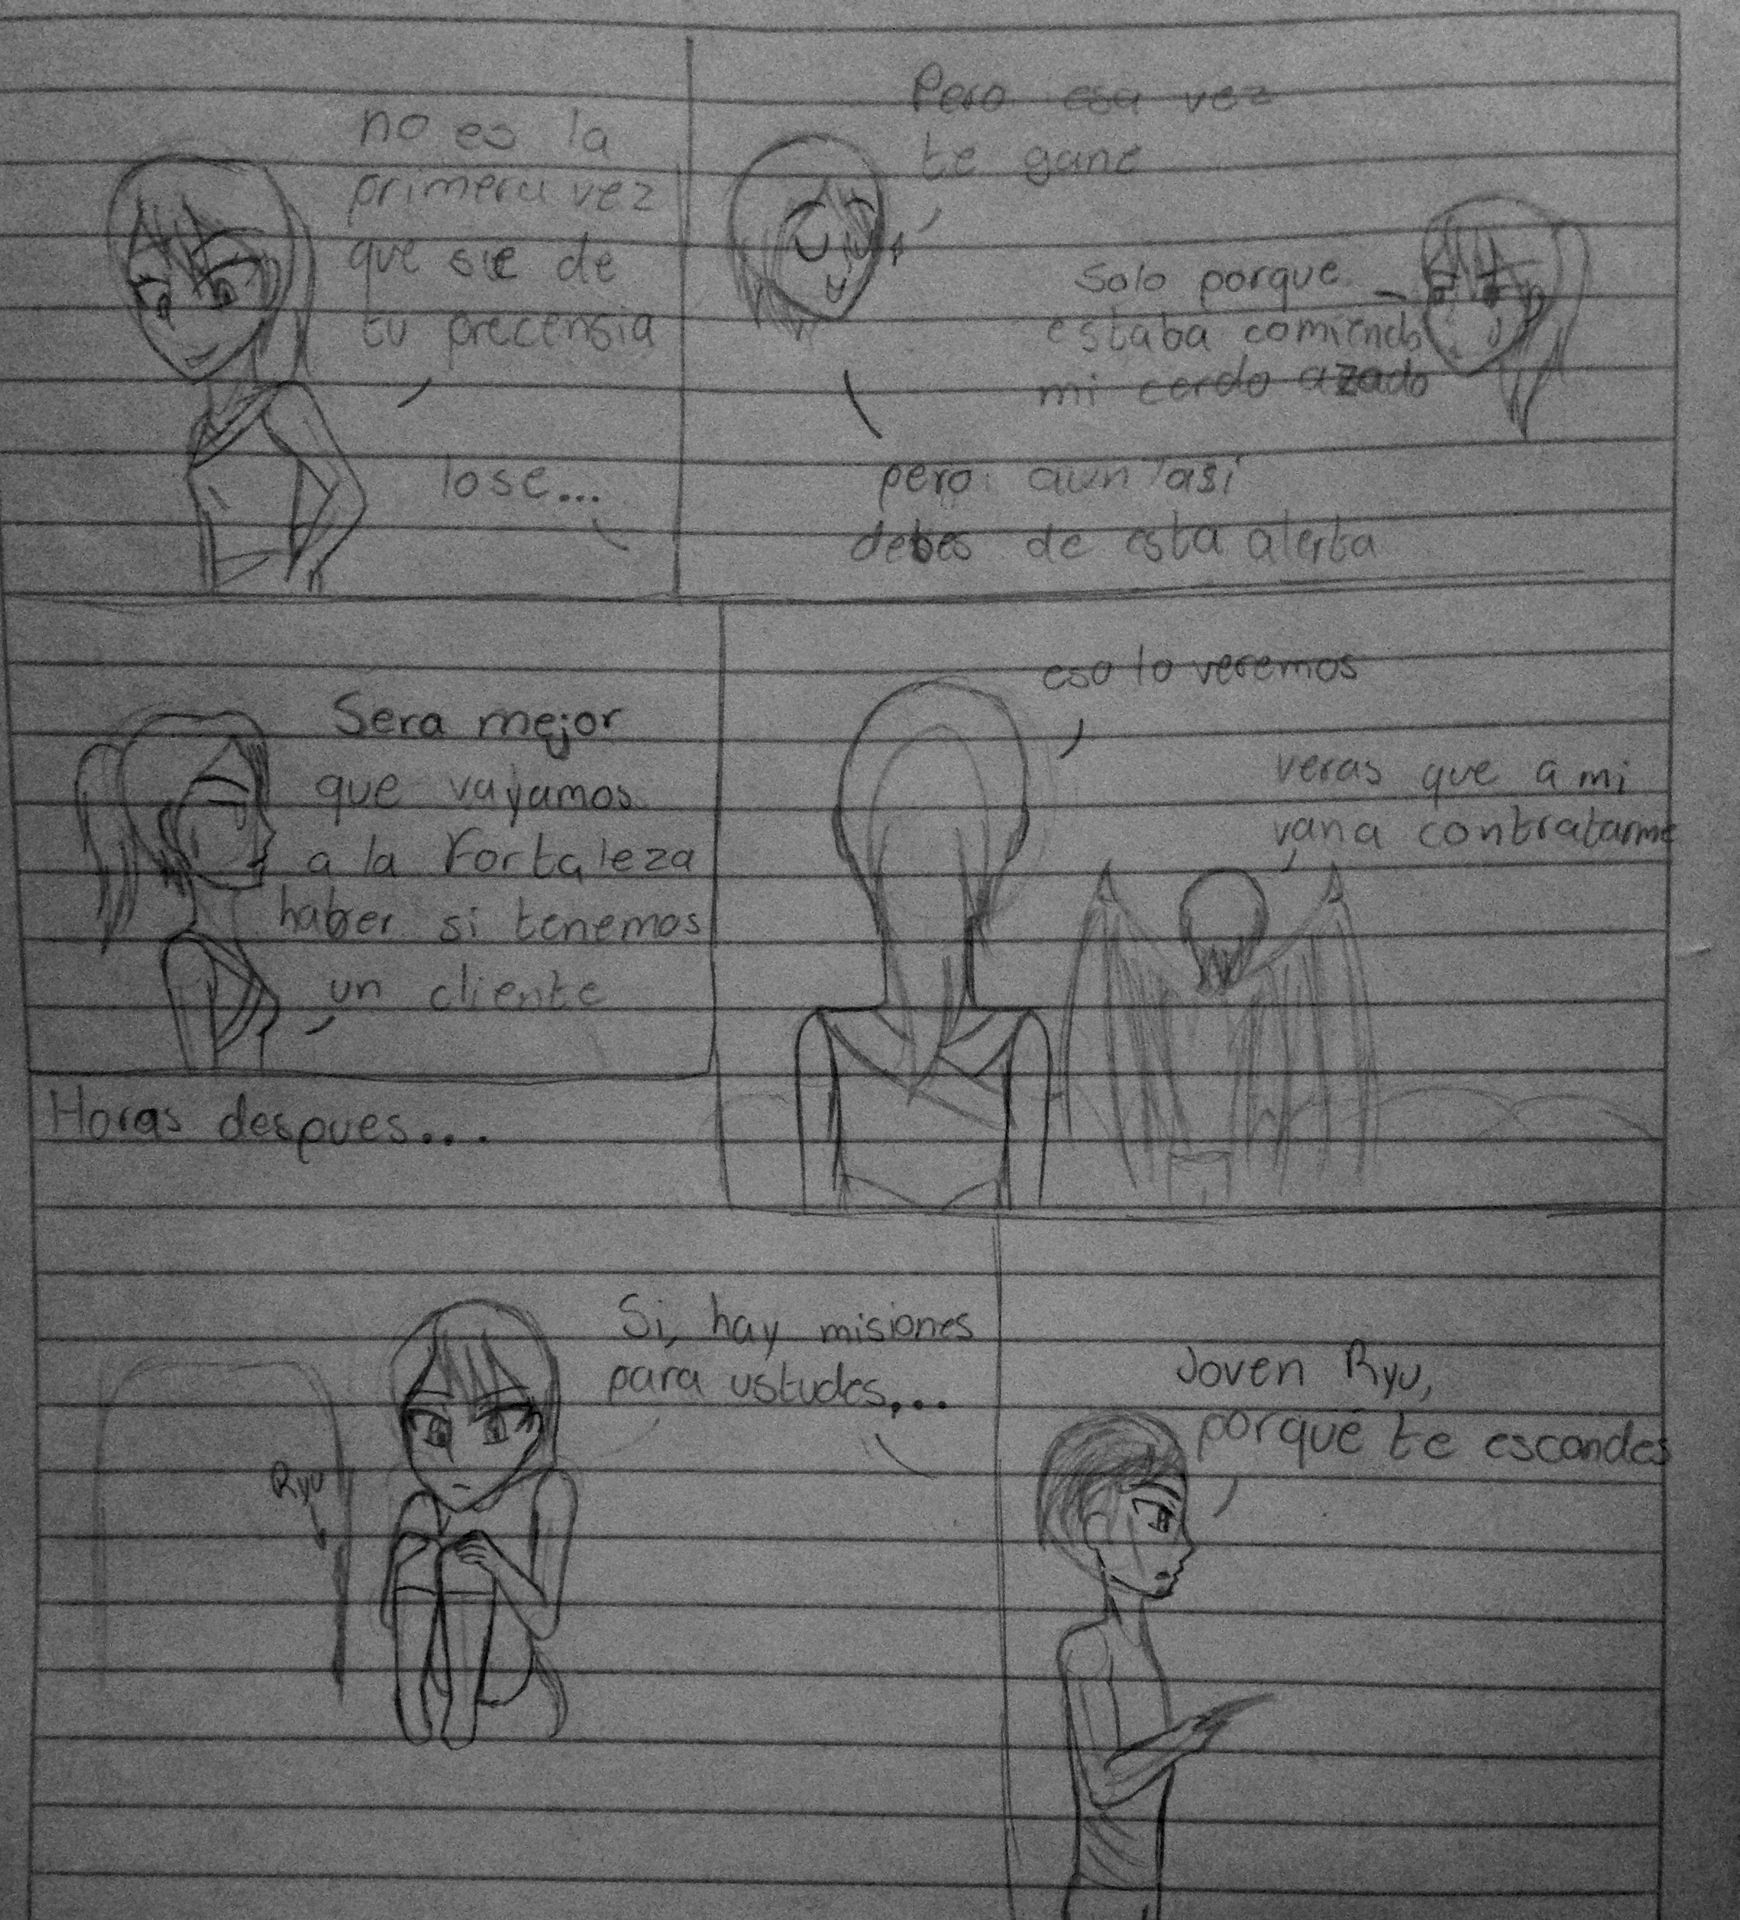 no es la
primera vez
que sie de
tu precensia
lose...
Pero esa vez
te gane
Solo porque
estaba comiendo
mi cerdo azado
pero aun asi
debes de esta alerta
Sera mejor
que vayamos
a la Fortaleza
haber si tenemos
un cliente
eso lo veremos
veras que a mi
van a contratarme
Horas despues...
Si, hay misiones
para ustudes...
Ryu
Joven Ryu,
porque te escondes